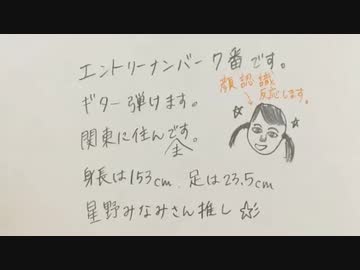 エントリーナンバー7番です。
ギター弾けます。
関東に住んでます。
身長は153cm、足は23.5cm
星野みなみさん推し☆彡
顔認識
反応します。